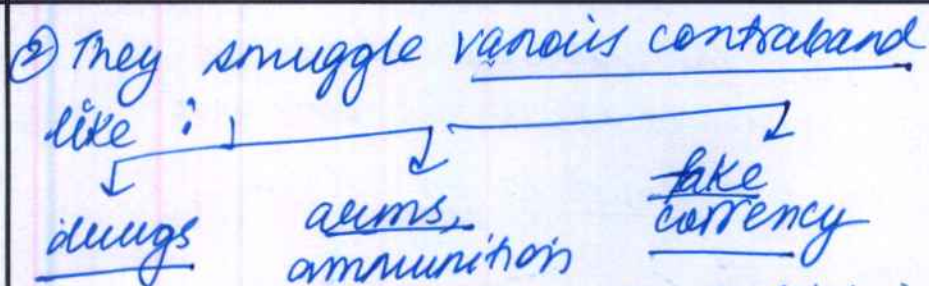 ② They smuggle various contraband
like :
drugs arms, fake
ammunition currency